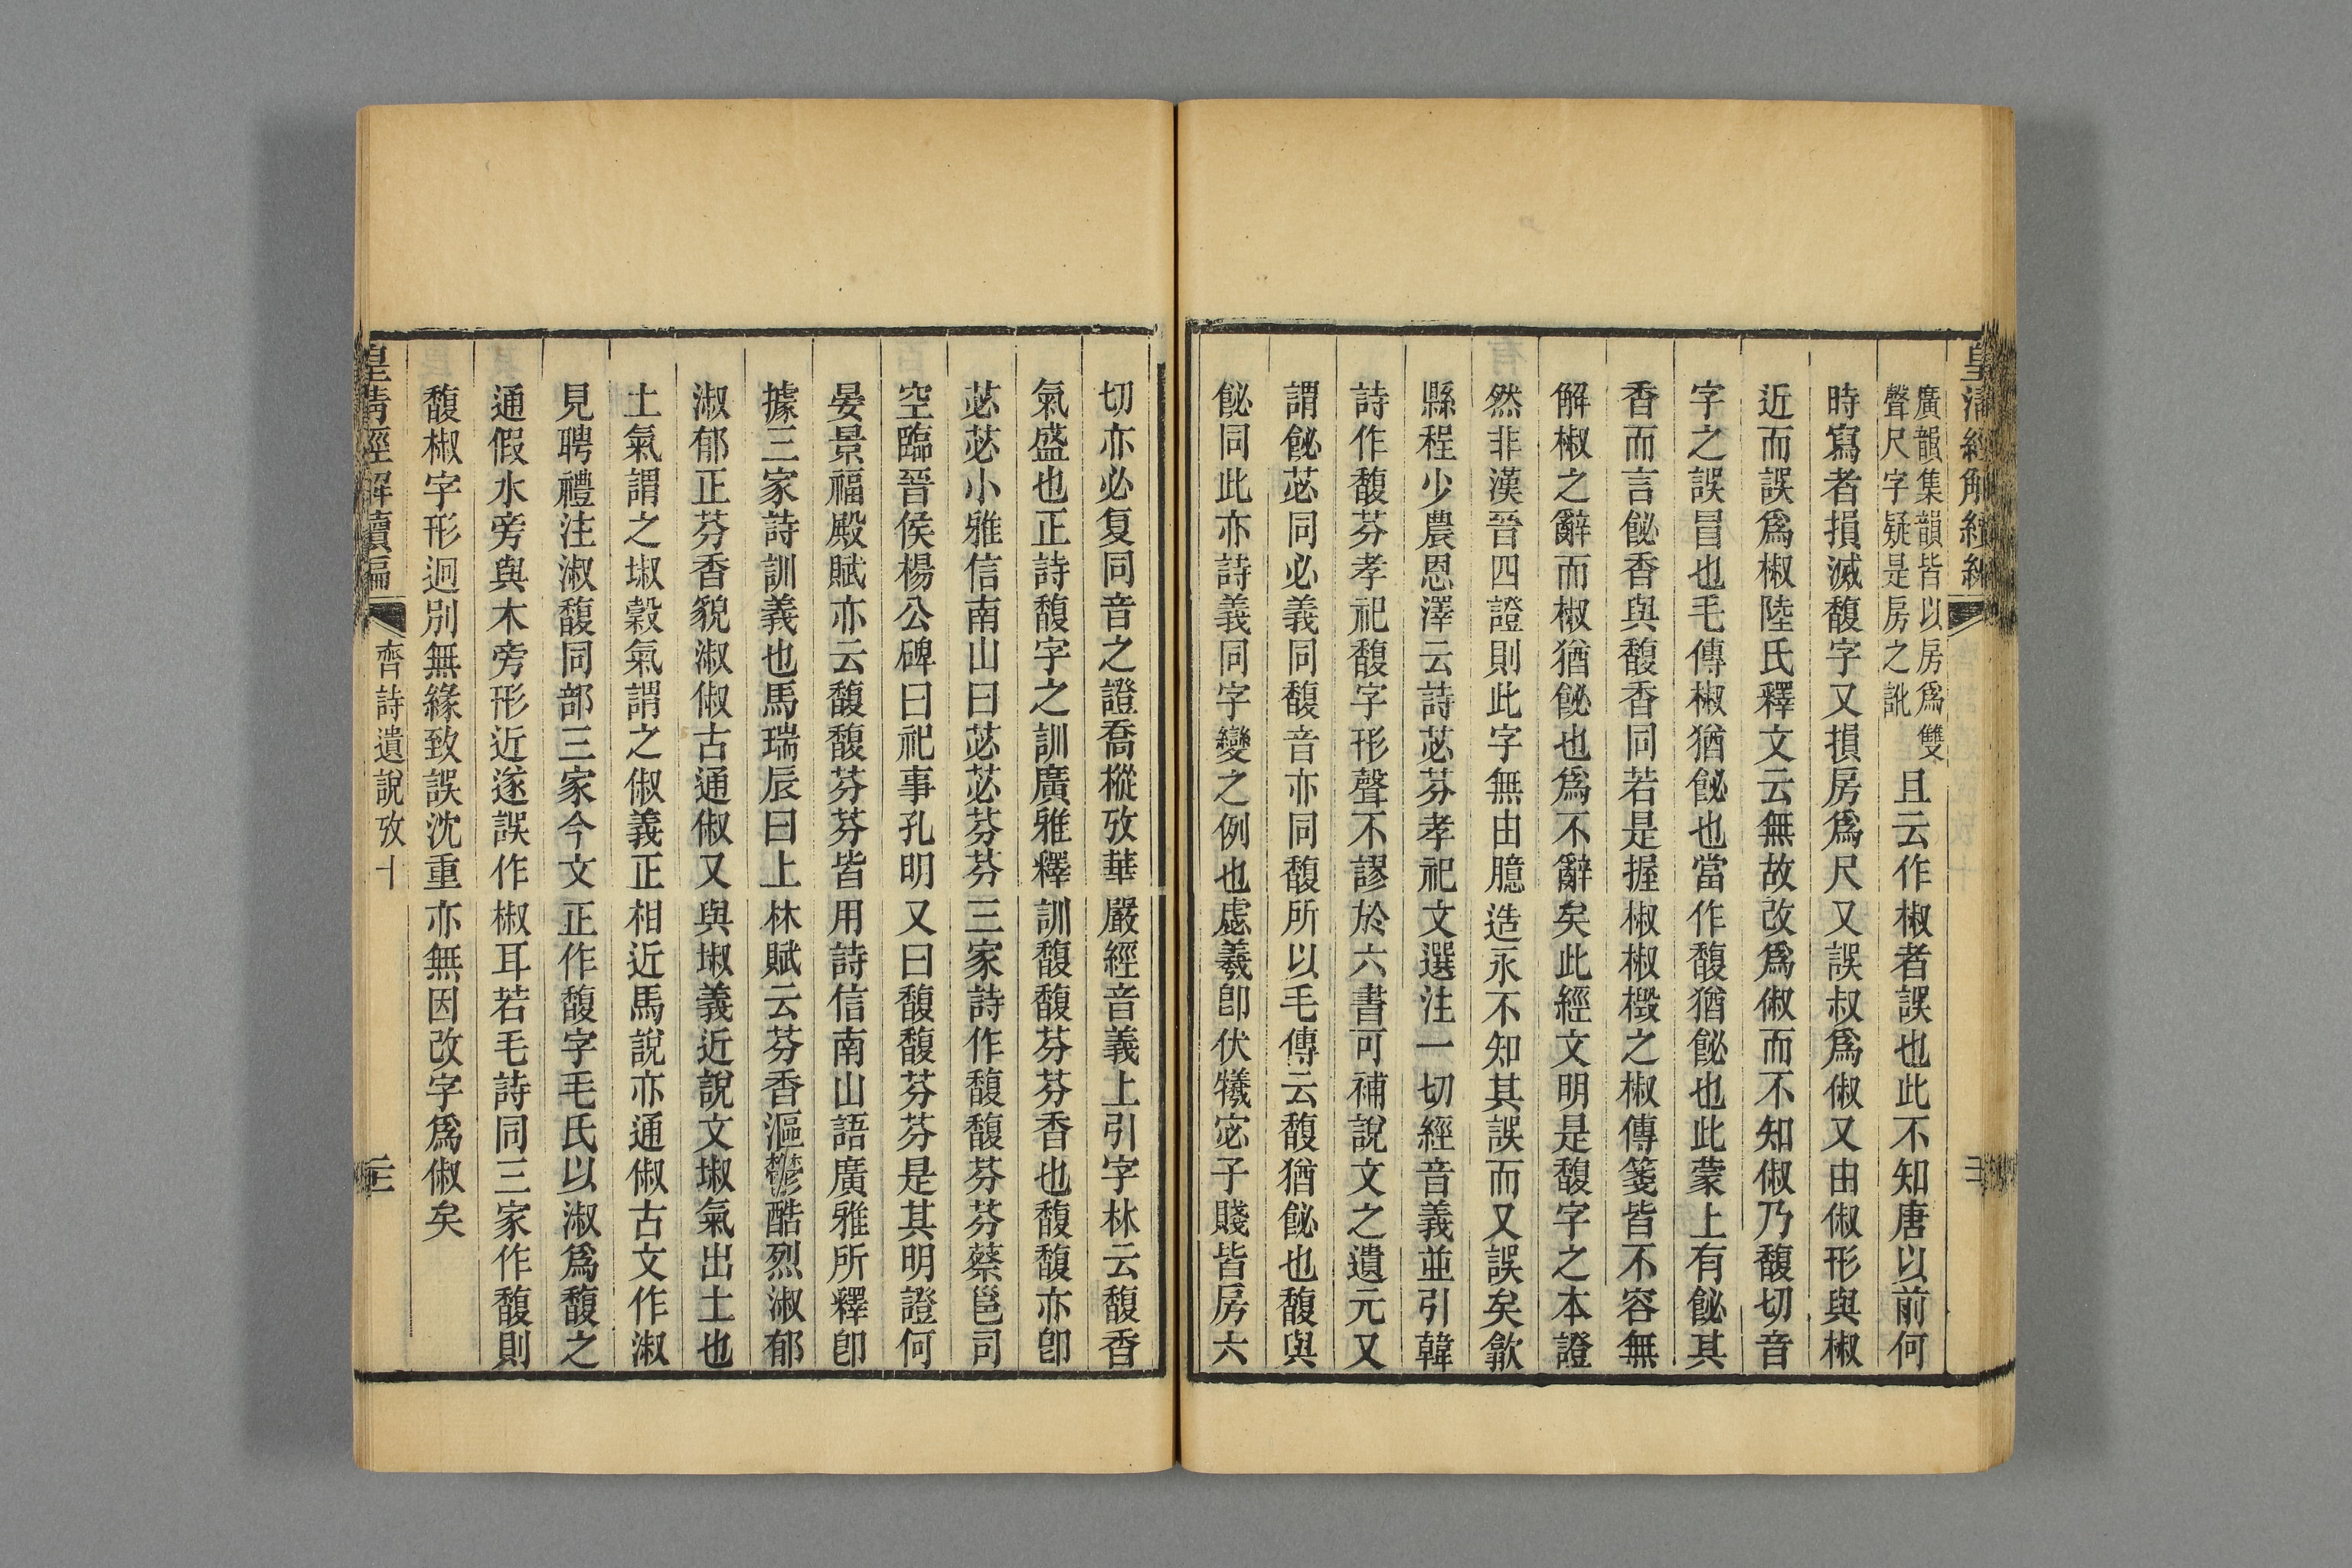 皇清經解續編
廣韻集韻皆以房爲雙
聲尺字疑是房之訛
且云作椒者誤也此不知唐以前何
時寫者損滅馥字又損房爲尺又誤叔爲俶又由俶形與椒
近而誤爲椒陸氏釋文云無故改爲俶而不知俶乃馥切音
字之誤冒也毛傳椒猶飶也當作馥猶飶也此蒙上有飶其
香而言飶香與馥香同若是握椒椒樧之椒傳箋皆不容無
解椒之辭而椒猶飶也爲不辭矣此經文明是馥字之本證
然非漢晉四證則此字無由臆造永不知其誤而又誤矣歙
縣程少農恩澤云詩苾芬孝祀文選注一切經音義並引韓
詩作馥芬孝祀馥字形聲不謬於六書可補說文之遺元又
謂飶苾同必義同馥音亦同馥所以毛傳云馥猶飶也馥與
飶同此亦詩義同字變之例也虙羲卽伏犧宓子賤皆房六
切亦必复同音之證喬樅攷華嚴經音義上引字林云馥香
氣盛也正詩馥字之訓廣雅釋訓馥馥芬芬香也馥馥亦卽
苾苾小雅信南山曰苾苾芬芬三家詩作馥馥芬芬蔡邕司
空臨晉侯楊公碑曰祀事孔明又曰馥馥芬芬是其明證何
晏景福殿賦亦云馥馥芬芬皆用詩信南山語廣雅所釋卽
據三家詩訓義也馬瑞辰曰上林賦云芬香漚鬱酷烈淑郁
淑郁正芬香貌淑俶古通俶又與埱義近說文埱氣出土也
土氣謂之埱穀氣謂之俶義正相近馬說亦通俶古文作淑
見聘禮注淑馥同部三家今文正作馥字毛氏以淑爲馥之
通假水旁與木旁形近遂誤作椒耳若毛詩同三家作馥則
馥椒字形迥別無緣致誤沈重亦無因改字爲俶矣
皇清經解續編
齊詩遺說攷十